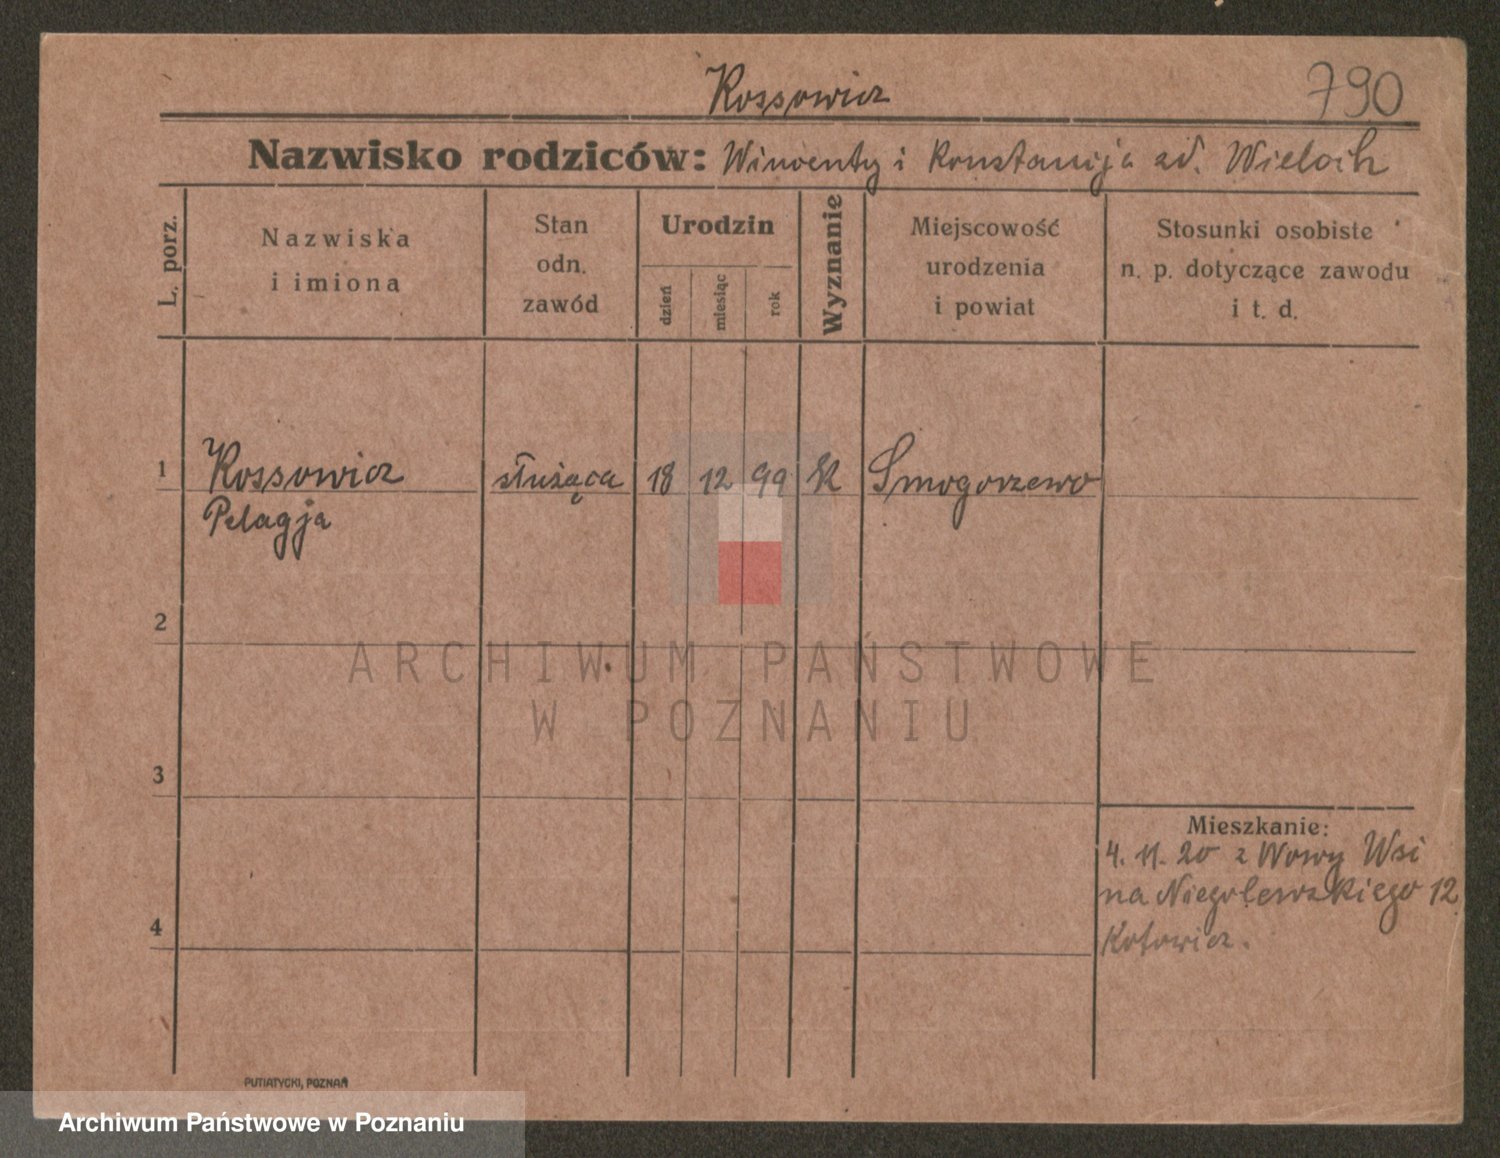 Kossowicz
790
Nazwisko rodziców: Wincenty i Konstancja zd. Wieloch
L. porz.
Nazwiska
i imiona
Stan
odn.
zawód
Urodzin
dzień
miesiąc
rok
Wyznanie
Miejscowość
urodzenia
i powiat
Stosunki osobiste
n. p. dotyczące zawodu
i t. d.
1 Kossowicz służąca 18 12 99 K Smogorzewo
Pelagja
2
3
4
Mieszkanie:
4. 11. 20 z Nowy Wsi
na Niegolewskiego 12
ARCHIWUM PAŃSTWOWE
W POZNANIU
PUTIATYCKI, POZNAŃ
Archiwum Państwowe w Poznaniu